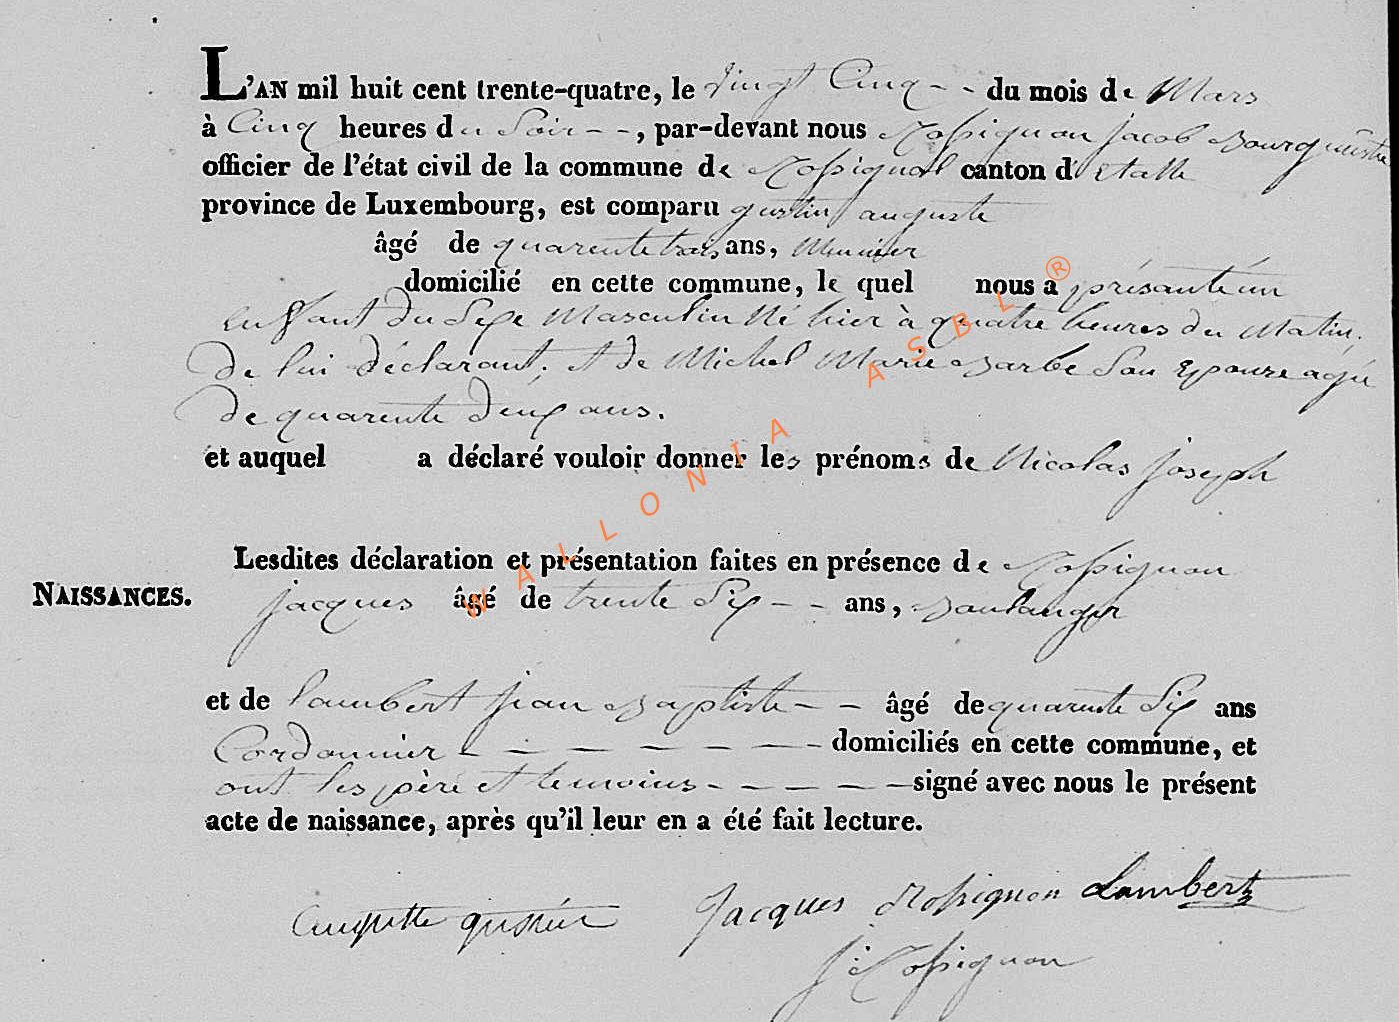 L'AN mil huit cent trente-quatre, le vingt Cinq - - du mois de Mars
à Cinq heures du Soir - - -, par-devant nous Rossignon Jacob Bourguemestre
officier de l'état civil de la commune de Rossignol canton d'Etalle
province de Luxembourg, est comparu gustin auguste
âgé de quarente trois ans, Meunier
domicilié en cette commune, le quel nous a présanté un
enffant du Sexe Masculin Né hier à quatre heures du Matin.
De lui déclarant, et de Michel Marie Barbe Son Epouze agée
De quarente Deux ans.
et auquel a déclaré vouloir donner les prénoms de Nicolas Joseph
Lesdites déclaration et présentation faites en présence de Rossignon
NAISSANCES.
Jacques âgé de trente Six - - ans, Boulanger
et de Lambert Jean Baptiste - - âgé de quarente Six ans
Cordonnier - - - - - - - - domiciliés en cette commune, et
ont les père et temoins - - - - - signé avec nous le présent
acte de naissance, après qu'il leur en a été fait lecture.
Auguste gustin Jacques Rossignon Lambert
J: Rossignon
WALLONIA ASBL ®